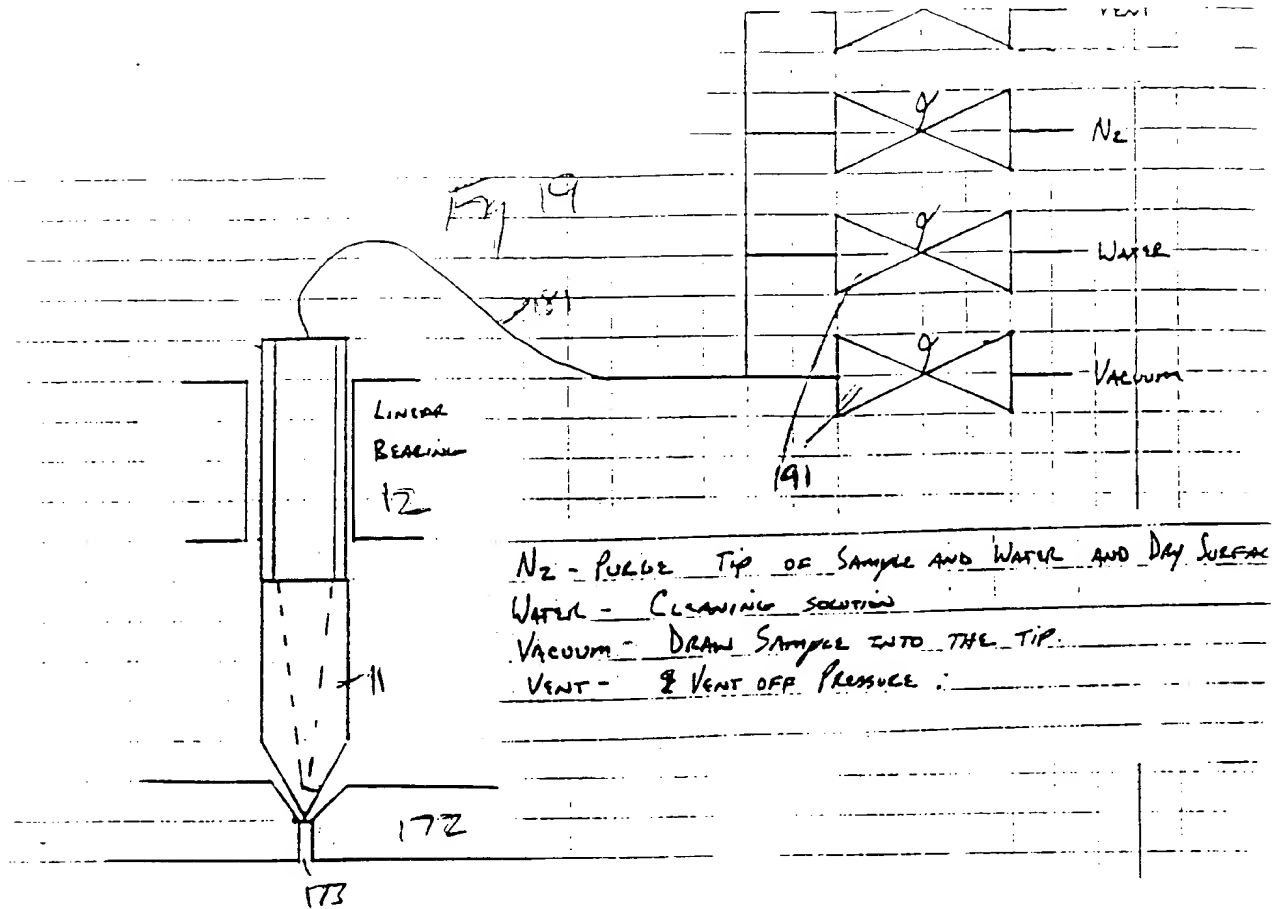 VENT
N2
19
WATER
181
VACUUM
LINEAR
BEARING
12
191
N2 - PURGE TIP OF SAMPLE AND WATER AND DRY SURFAC
WATER - CLEANING SOLUTION
VACUUM - DRAW SAMPLE INTO THE TIP.
VENT - VENT OFF PRESSURE.
11
172
173